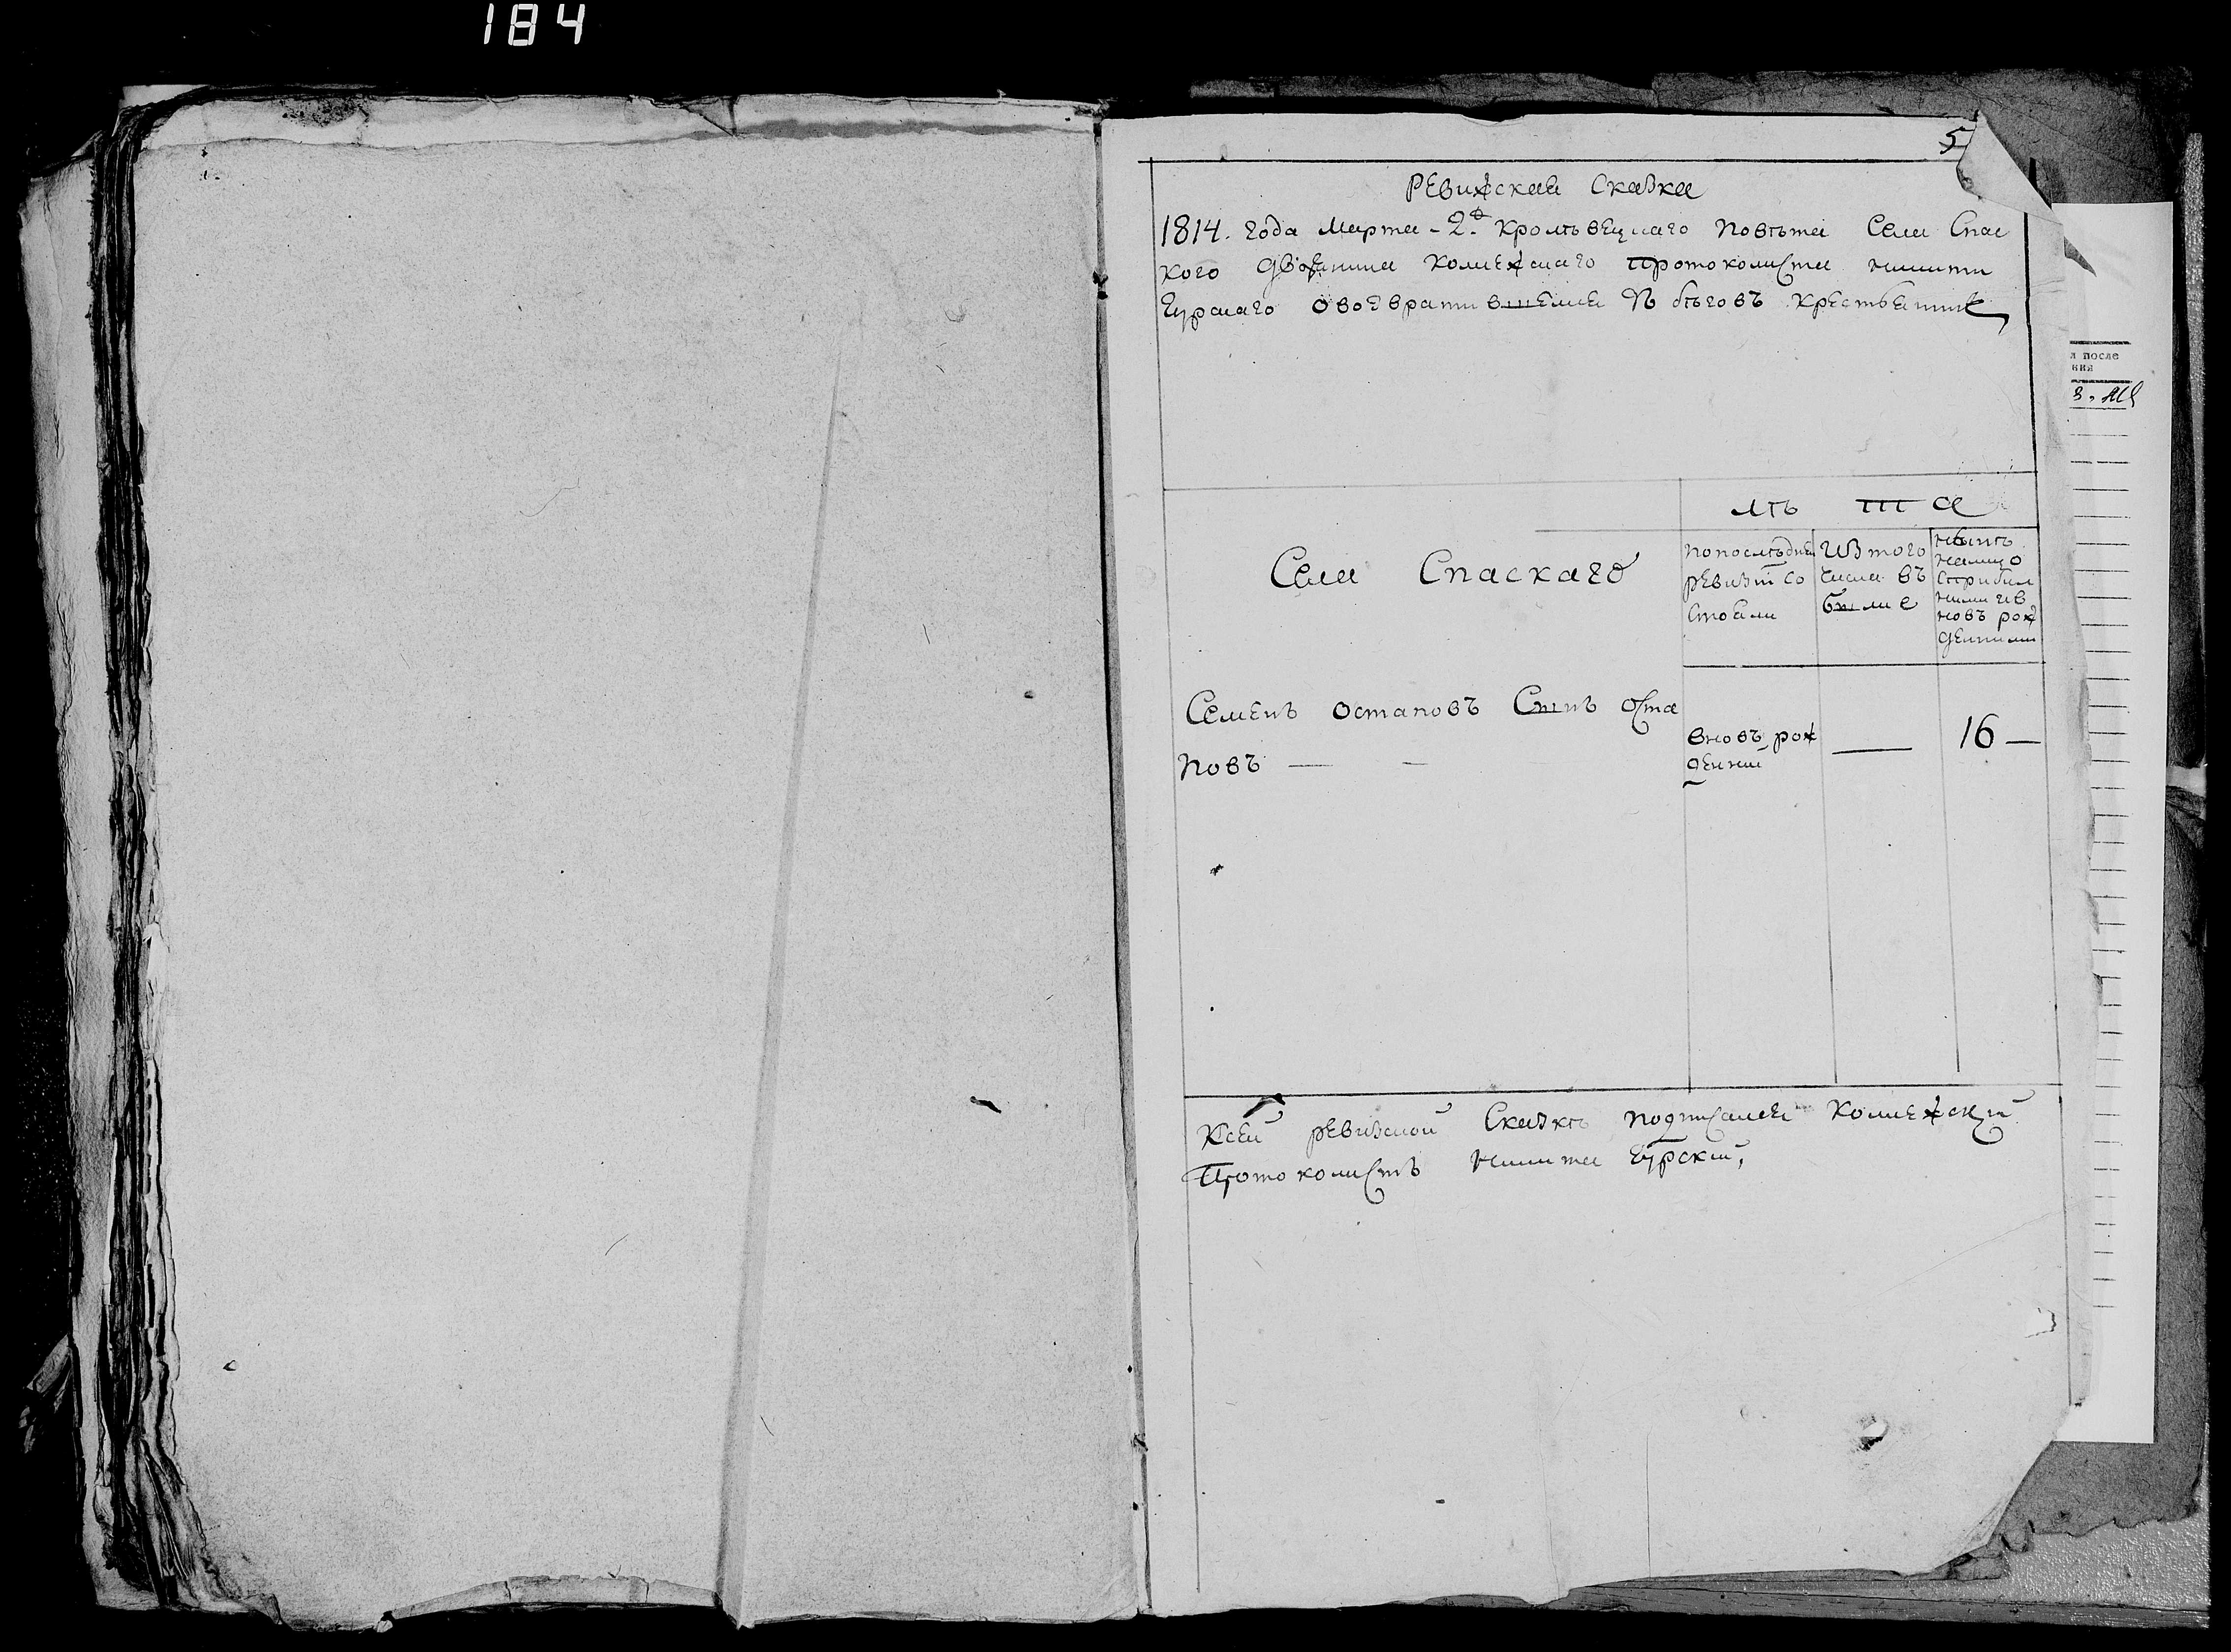 184
5
Ревижская Сказка
1814. года Марта - 2д. Кролѣвецкаго Повѣта Села Спас
кого дворенина колежскаго протоколиста никити
Гурскаго овозвратившемся зъ бѣговъ крестьянине
лѣ та
Села Спаскаго
попослѣдней
ревизіи со
стояли
изтого
числа въ
было
нынѣ
налицо
сприбил
ними ив
новъ рож
денними
Семенъ остаповъ Синъ оста
повъ — —
вновъ рож
денни
—
16 —
Ксей ревизской Сказкѣ подписался колежский
Протоколистъ никита Гурский,
я после
ния